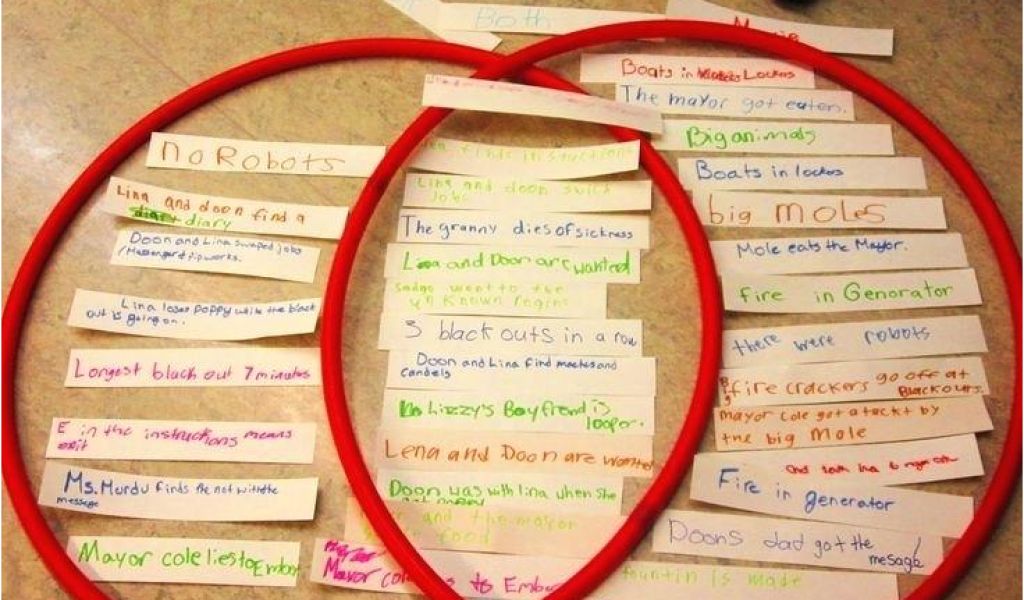 Both
Movie
no Robots
Lina and doon find a
diary diary
Doon and Lina swaped jobs
/Messenger pipworks.
Lina loses poppy while the black
out is going on.
Longest black out 7 minutes
E in the instructions means
exit
Ms. Murdu finds the not with the
message
Mayor cole lies to Embor
finds instructions
Lina and doon swich
jobs
The granny dies of sickness
Lina and Doon are wanted
Sadge went to the
unknown regins
3 black outs in a row
Doon and Lina find maches and
candels
Lizzy's Boyfrend is
looper.
Lena and Doon are wanted
Doon was with lina when she
and the mayor
food
Mayor
to Embor
Boats in Lockers
The mayor got eaten.
Big animals
Boats in lockers
big moles
Mole eats the Mayor.
fire in Genorator
there were robots
fire crackers go off at
Blackours.
mayor cole got atackt by
the big mole
Fire in generator
Doons dad got the
mesage
fountin is made